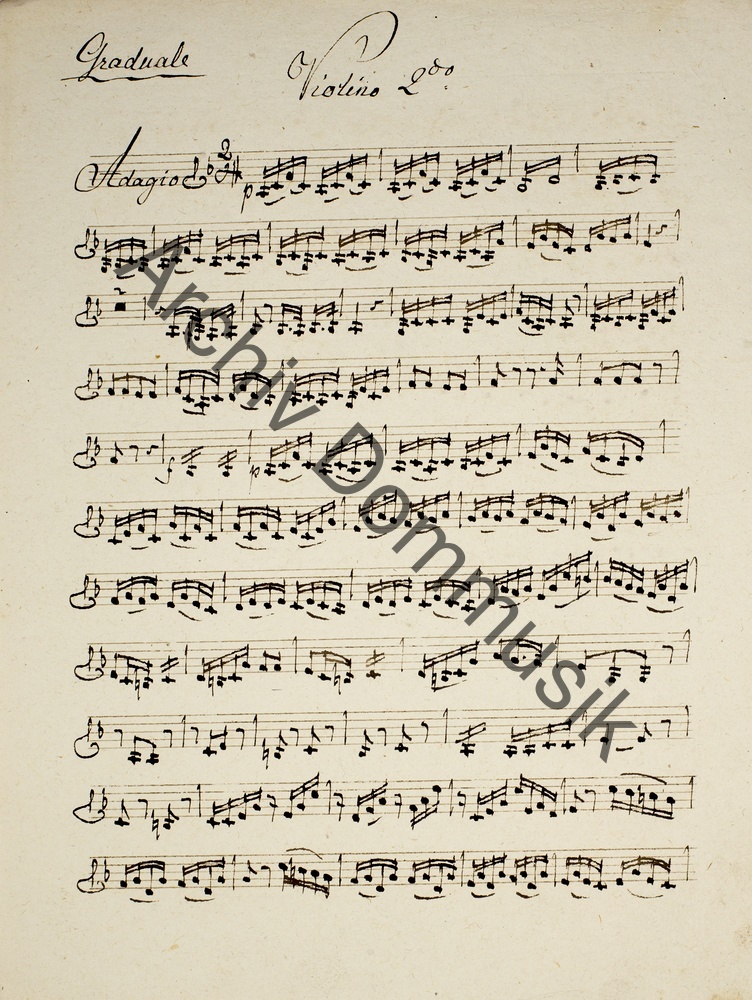 Graduale
Violino 2do
Adagio
2
4
p
f
p
Archiv Dommusik